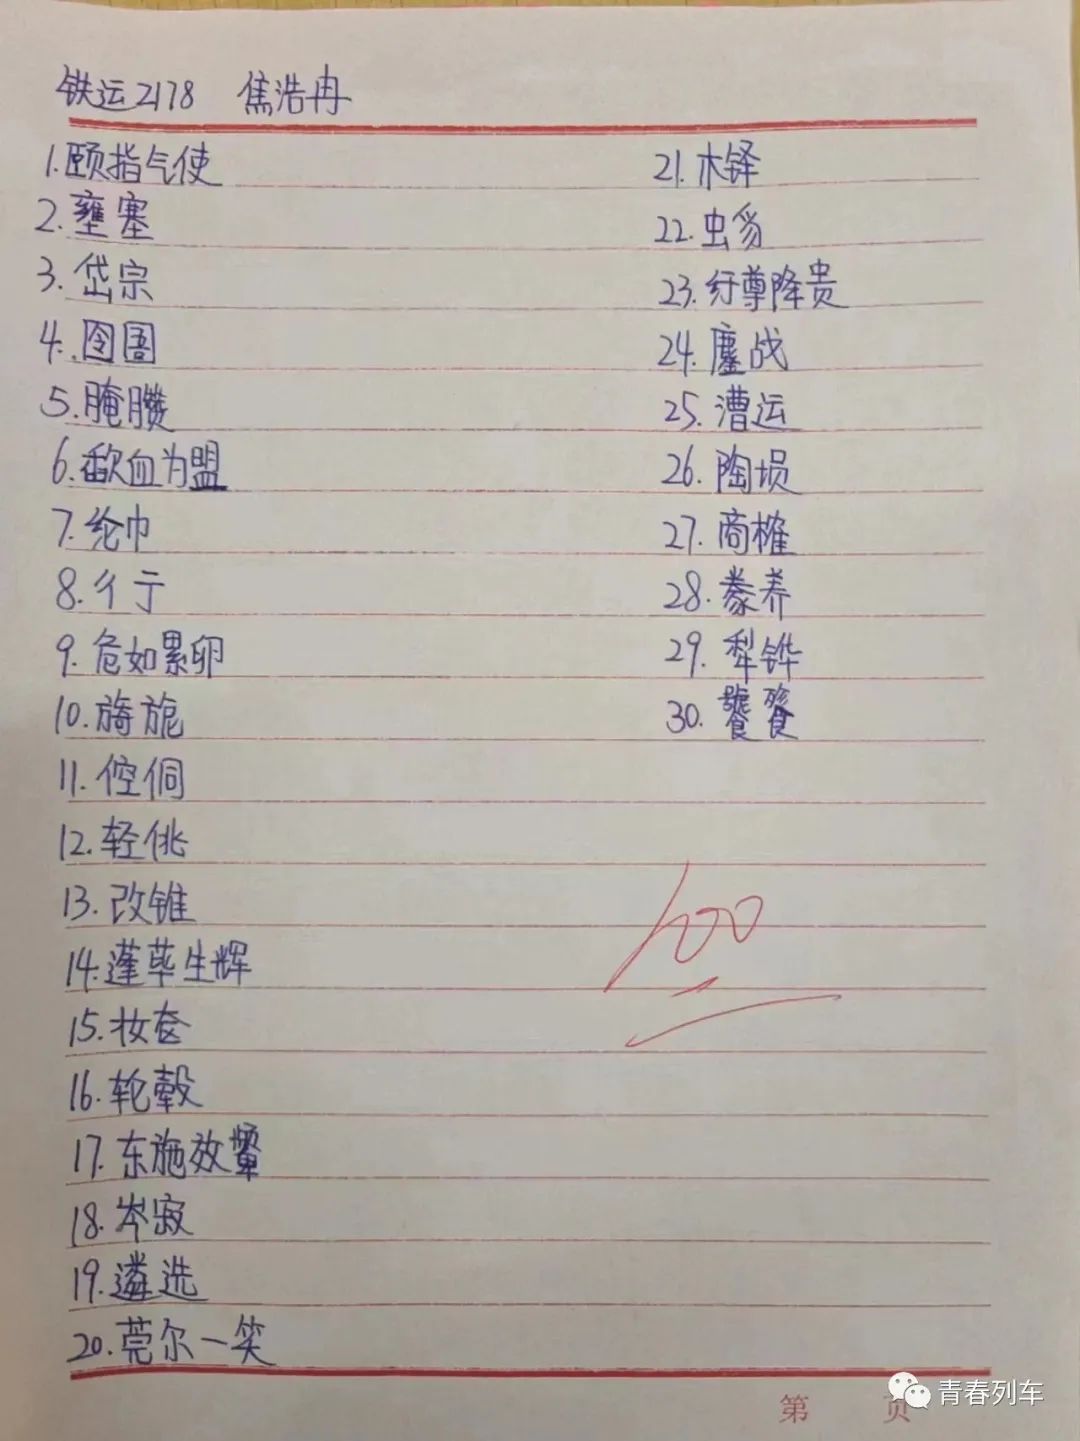 铁运2178 焦浩冉
1.颐指气使
2.壅塞
3.岱宗
4.囹圄
5.腌臜
6.歃血为盟
7.纶巾
8.彳亍
9.危如累卵
10.旖旎
11.倥侗
12.轻佻
13.改锥
14.蓬荜生辉
15.妆奁
16.轮毂
17.东施效颦
18.岑寂
19.遴选
20.莞尔一笑
21.木铎
22.虫豸
23.纡尊降贵
24.鏖战
25.漕运
26.陶埙
27.商榷
28.豢养
29.犁铧
30.饕餮
100
第 页
青春列车